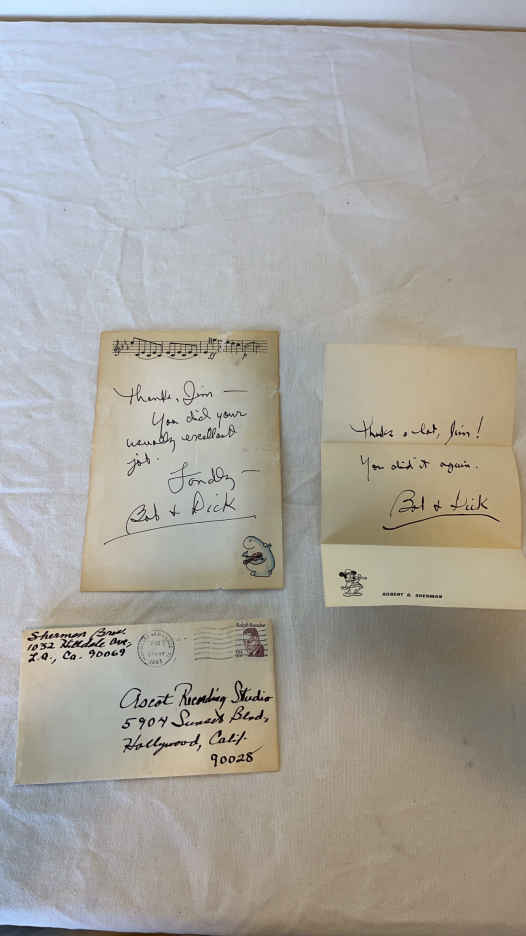 Thanks, Jim —
You did your
usually excellent
job.
Fondly —
Bob & Dick
Thanks a lot, Jim!
You did it again.
Bob & Dick
ROBERT B. SHERMAN
Sherman Bros.
1032 Hilldale Ave.,
L.A., Ca. 90069
Ralph Bunche
Ascot Recording Studio
5904 Sunset Blvd,
Hollywood, Calif.
90028